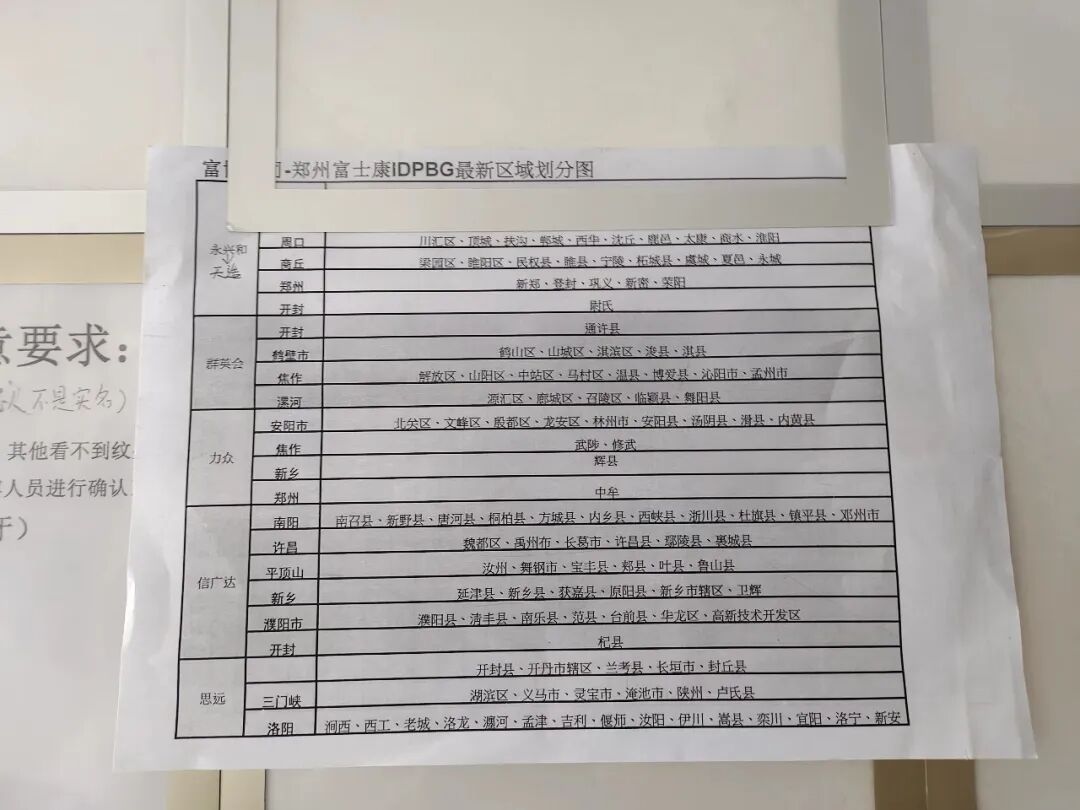 富 -郑州富士康IDPBG最新区域划分图
永兴和
天
周口 川汇区、顶城、扶沟、郸城、西华、沈丘、鹿邑、太康、商水、淮阳
商丘 梁园区、睢阳区、民权县、睢县、宁陵、柘城县、虞城、夏邑、永城
郑州 新郑、登封、巩义、新密、荥阳
开封 尉氏
群英会
开封 通许县
鹤壁市 鹤山区、山城区、淇滨区、浚县、淇县
焦作 解放区、山阳区、中站区、马村区、温县、博爱县、沁阳市、孟州市
漯河 源汇区、郾城区、召陵区、临颍县、舞阳县
力众
安阳市 北关区、文峰区、殷都区、龙安区、林州市、安阳县、汤阴县、滑县、内黄县
焦作 武陟、修武
新乡 辉县
郑州 中牟
信广达
南阳 南召县、新野县、唐河县、桐柏县、方城县、内乡县、西峡县、浙川县、杜旗县、镇平县、邓州市
许昌 魏都区、禹州市、长葛市、许昌县、鄢陵县、襄城县
平顶山 汝州、舞钢市、宝丰县、郏县、叶县、鲁山县
新乡 延津县、新乡县、获嘉县、原阳县、新乡市辖区、卫辉
濮阳市 濮阳县、清丰县、南乐县、范县、台前县、华龙区、高新技术开发区
开封 杞县
思远
开封县、开丹市辖区、兰考县、长垣市、封丘县
三门峡 湖滨区、义马市、灵宝市、渑池市、陕州、卢氏县
洛阳 涧西、西工、老城、洛龙、瀍河、孟津、吉利、偃师、汝阳、伊川、嵩县、栾川、宜阳、洛宁、新安
意要求：
人不是实名）
其他看不到纹
人员进行确认
于）